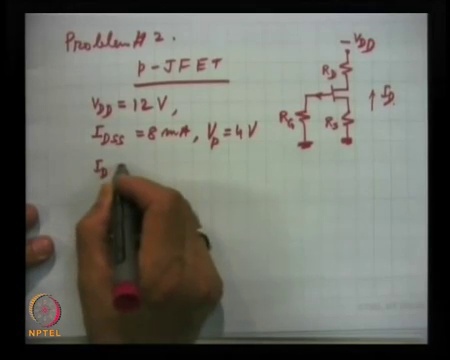 Problem # 2.
p-JFET
VDD = 12 V,
IDSS = 8 mA, Vp = 4 V
ID
-VDD
RD
ID
RG
RS
NPTEL